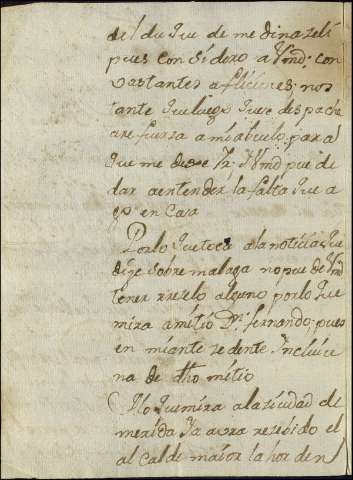 del du Que de medinazeli
pues considero a Vmd; con
vastantes aflicciones; nos
tante Que luego Que se despache
are fuersa a mi abuelo para
Que me dexe Ya; Y Vmd pue de
dar a entender la falta Que a
go en Casa
Por lo Que toca a la noticia Que
dije sobre malaga no pue de Vmd
tener rrezelo alguno por lo Que
mira a mi tio Dn. fernando; pues
en mi ante zedente Incluí ce
na de dho mi tio
Y lo Que mira a la ziudad de
merida Ya avra rezebido el
alcalde maior la hor den